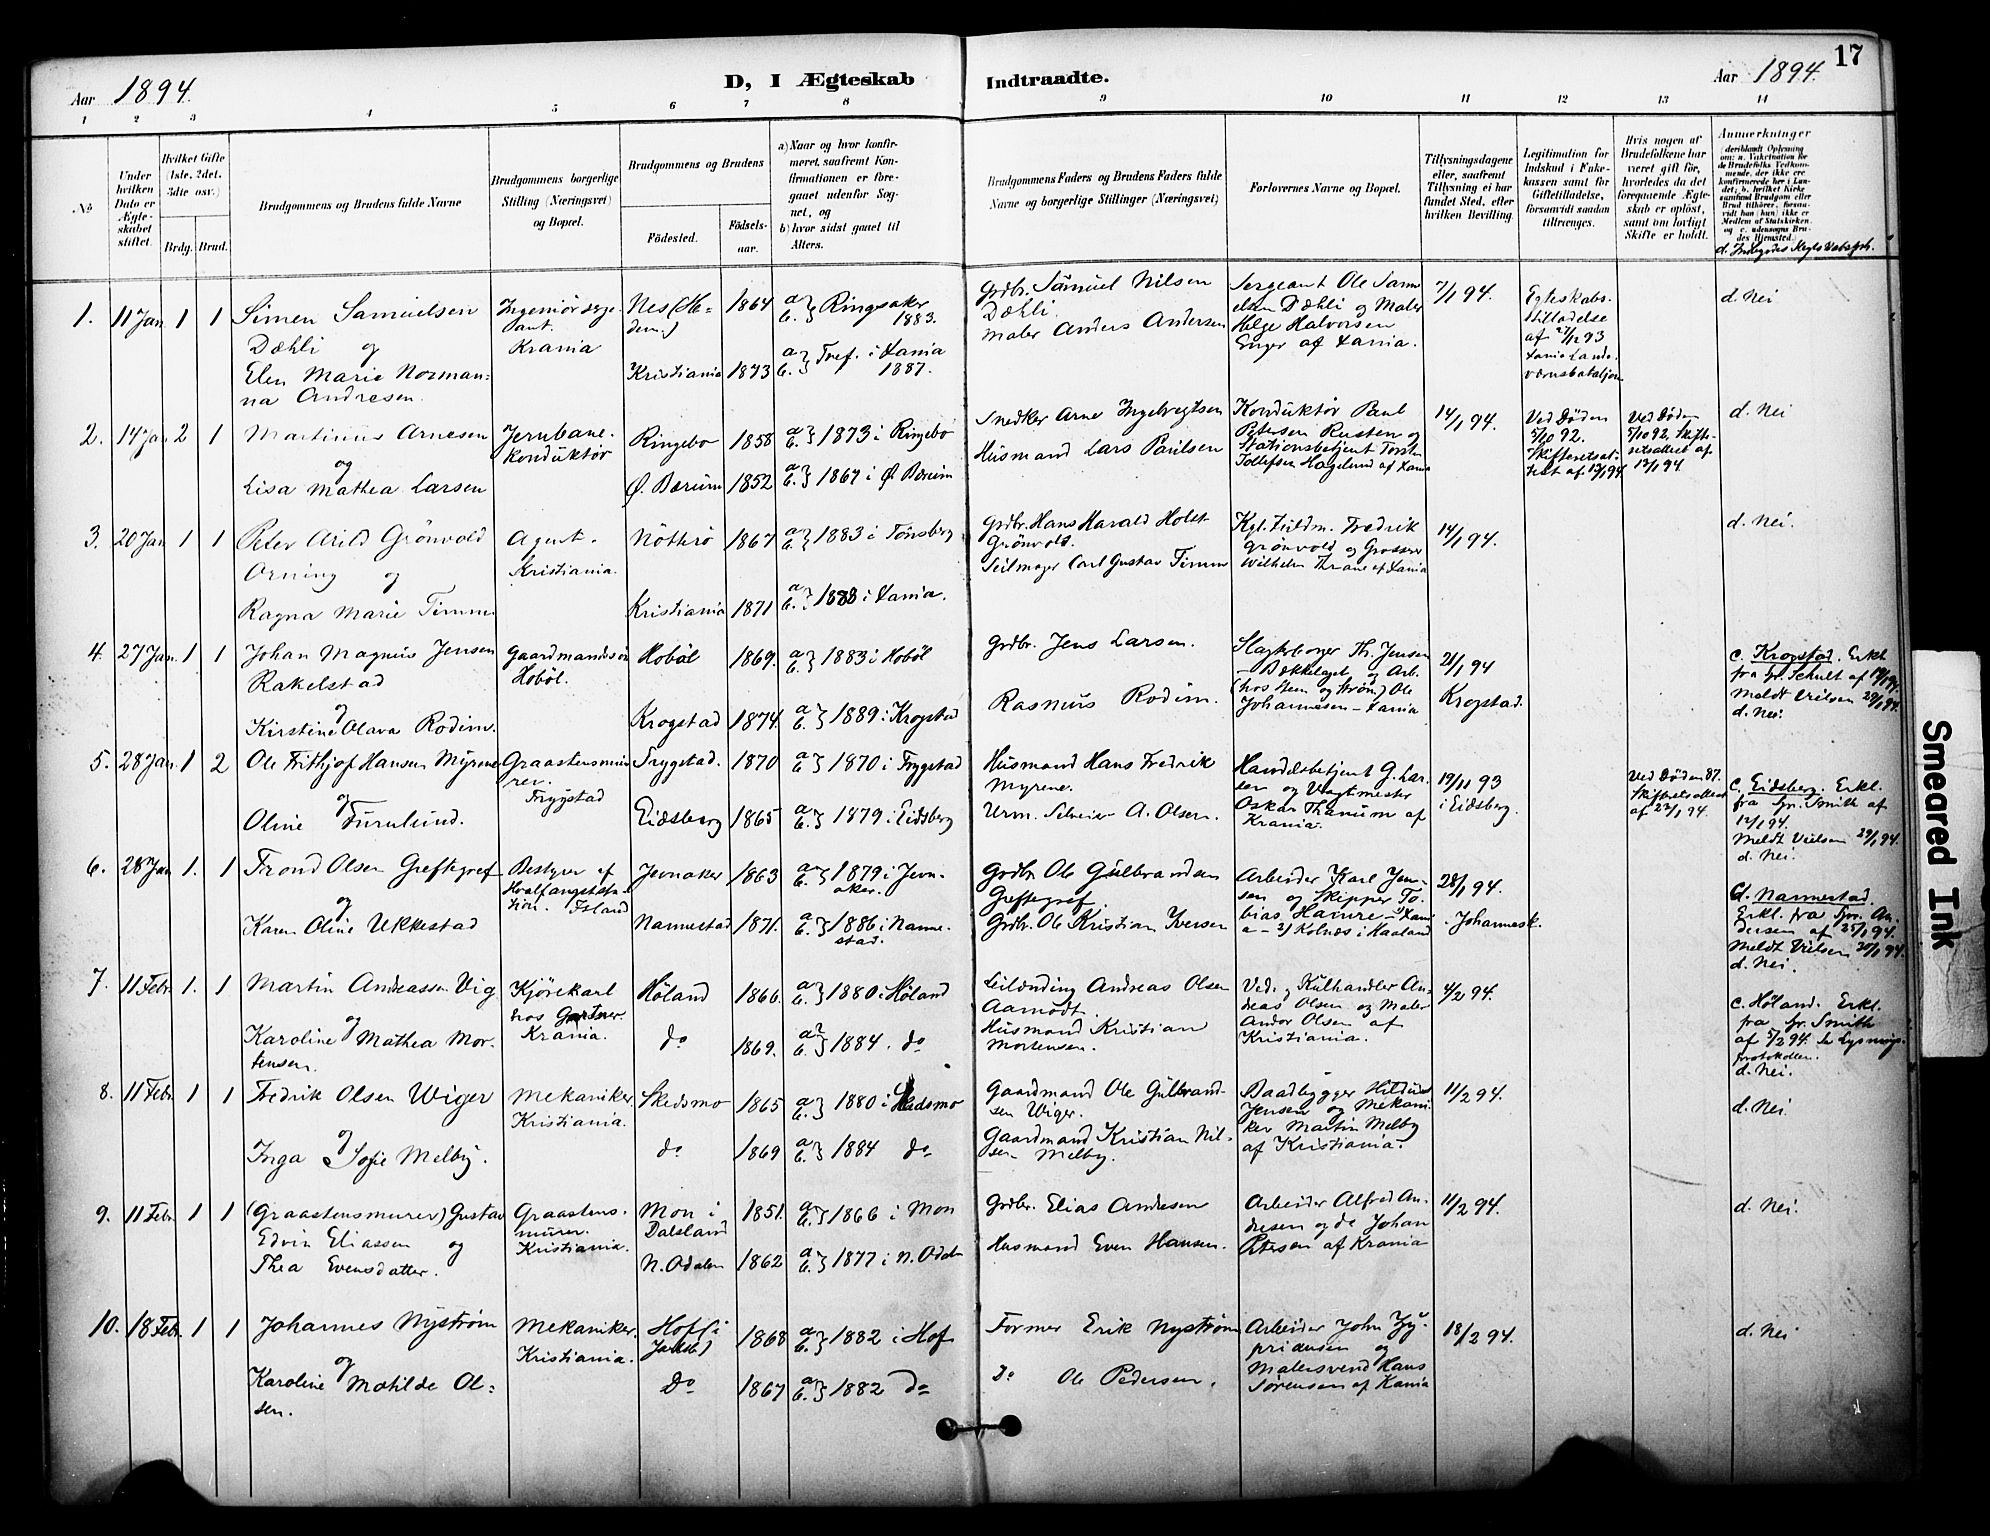 17
Aar 1894.
D, I Ægteskab
Indtraadte.
Aar 1894.
1 2 3 4 5 6 7 8 9 10 11 12 13 14
No
Under hvilken Dato er Ægteskabet stiftet.
Hvilket Gifte (1ste, 2det, 3die osv.)
Brdg. Brud.
Brudgommens og Brudens fulde Navne
Brudgommens borgerlige Stilling (Næringsvei) og Bopæl.
Brudgommens og Brudens
Fødested.
Fødselsaar.
a) Naar og hvor konfirmeret, saafremt Konfirmationen er foregaaet udenfor Sognet, og
b) hvor sidst gaaet til Alters.
Brudgommens Faders og Brudens Faders fulde Navne og borgerlige Stillinger (Næringsvei)
Forlovernes Navne og Bopæl.
Tillysningsdagene eller, saafremt Tillysning ei har fundet Sted, efter hvilken Bevilling.
Legitimation for Indskud i Enkekassen samt for Giftetilladelse, forsaavidt saadan tiltrænges.
Hvis nogen af Brudefolkene har været gift før, hvorledes da det foregaaende Ægteskab er opløst, samt om lovligt Skifte er holdt.
Anmerkninger
1. 11 Jan 1 1
Simen Samuelsen
Dæhli og
Elen Marie Norman=
na Andresen.
Ingeniørserge
Krania
Nes (He=
dem.)
1864
a b } Ringsaker
1883.
Kristiania 1873
a b } Tref. i Xania
1887.
Grdbr. Samuel Nilsen
Dæhli.
Maler Anders Andersen
Sergeant Ole Sam
elsen Dæhli og Maler
Helge Halvorsen
Enger af Xania.
7/1 94.
Egteskabs.
tilladelse
af 27/12 93
Xania Lande
værnsbataljon
d. Nei
2. 14 Jan 2 1
Martinus Arnesen
og
Lisa Mathea Larsen
Jernbane-
konduktør
Ringebo 1858
a b } 1873 i Ringebo
Ø. Bærum 1852
a b } 1867 i Ø. Bærum
Snedker Arne Ingebregtsen
Husmand Lars Paulsen
Konduktør Paul
Petersen Rusten og
Stationsbetjent Torsten
Tollefsen Hagelund af Xania
14/1 94.
Ved Døden
5/10 92.
Skifteretsat=
test af 12/1 94.
Ved Døden
5/10 92. Skifte-
retsattest af
12/1 94.
d. Nei
3. 20 Jan 1 1
Peter Arild Grønvold
Orning og
Ragna Marie Timm
Agent.
Kristiania.
Nøtterø 1867
a b } 1883 i Tønsberg
Kristiania 1871
a b } 1888 i Xania.
Grdbr. Hans Harald Holst
Grønvold.
Seilmager Carl Gustav Timm
Kgl. Fuldm. Fredrik
Grønvold og Grosserer
Wilhelm Thrane af Xania
14/1 94.
d. Nei.
4. 27 Jan. 1 1
Johan Magnus Jensen
Rakelstad
og
Kirstine Olava Rodim.
Gaardmandssøn
Hobøl.
Hobøl 1869.
a b } 1883 i Hobøl
Krogstad 1874.
a b } 1889 i Krogstad
Grdbr. Jens Larsen.
Rasmus Rodim.
Slagtborger Th. Jensen
- Bækkelaget og Arb.
(hos Steen og Strøm) Ole
Johannesen - Xania
21/1 94
Krogstad.
c. Krogstad. Erkl
fra Spr. Schult af 19/1 94.
Meldt Vielsen 29/1 94.
d. Nei.
5. 28 Jan. 1 2
Ole Frithjof Hansen Myrene
og
Oline Furulund.
Graastensmu
rer.
Trygstad
Trygstad. 1870
a b } 1870 i Trygstad
Eidsberg 1865
a b } 1879 i Eidsberg
Husmand Hans Fredrik
Myrene.
Urm. Selveier A. Olsen.
Handelsbetjent G. Lar.
sen og Vagtmester
Oskar Thanum af
Krania.
19/11 93
i Eidsberg.
Ved Døden 87.
Skifteretsattest
af 22/1 94.
c. Eidsberg. Erkl.
fra Spr. Smith af
12/1 94.
Meldt Vielsen 29/1 94.
d. Nei.
6. 28 Jan 1. 1
Trond Olsen Greftegref
og
Karen Oline Ukkestad
Bestyrer af
Hvalfangststa
tion. Island
Jevnaker 1863
a b } 1879 i Jevn-
aker.
Nannestad 1871.
a b } 1886 i Nanne
stad.
Grdbr. Ole Gulbrandsen
Greftegref.
Grdbr. Ole Kristian Iversen
Arbeider Karl Jen-
sen og Skipper To-
bias Hamre - Xani
a - 2) Kolnæs i Haaland
28/1 94.
- Johannesk.
d. Nannestad.
Erkl. fra Spr. An.
dersen af 25/1 94.
Meldt Vielsen 30/1 94.
d. Nei.
7. 11 Febr. 1. 1
Martin Andreassen Vig
og
Karoline Mathea Mor-
tensen.
Kjørekarl
hos Gartner.
Krania.
Høland 1866.
a b } 1880 i Høland
do 1869.
a b } 1884. do
Leilænding Andreas Olsen
Aamodt.
Husmand Kristian
Mortensen.
Ved. og Kulhandler An-
dreas Olsen og Maler
Andor Olsen af
Kristiania.
4/2 94.
c. Høland. Erkl.
fra Spr. Smith
af 5/2 94. Se Lysnings-
protokollen.
d. Nei.
8. 11 Febr. 1 1
Fredrik Olsen Wiger
og
Inga Sofie Melby.
Mekaniker
Kristiania.
Skedsmo 1865
a b } 1880 i Skedsmo
do 1869
a b } 1884 do
Gaardmand Ole Gulbrand-
sen Wiger.
Gaardmand Kristian Nil-
sen Melby.
Baadbygger Hildus
Jensen og Mekani
ker Martin Melby
af Kristiania.
11/2 94.
d. Nei.
9. 11 Febr. 1 1
(Graastensmurer) Gustav
Edvin Eliassen og
Thea Evensdatter.
Graastens-
murer.
Kristiania.
Mon i
Dalsland
1851.
a b } 1866 i Mon
N. Odalen 1862
a b } 1877 i N. Odal
Grdbr. Elias Andresen
Husmand Even Hansen.
Arbeider Alfred An-
dresen og do Johan
Petersen af Krania
11/2 94.
d. Nei.
10. 18 Febr. 1 1
Johannes Nystrøm
og
Karoline Matilde Ol=
sen.
Mekaniker.
Kristiania.
Hof (i
1868
a b } 1882 i Hof
Do 1867
a b } 1882 do
Former Erik Nystrøm
Do Ole Pedersen.
Arbeider John Zy-
priansen og
Malersvend Hans
Sørensen af Kania
18/2 94.
d. Nei
Smeared Ink